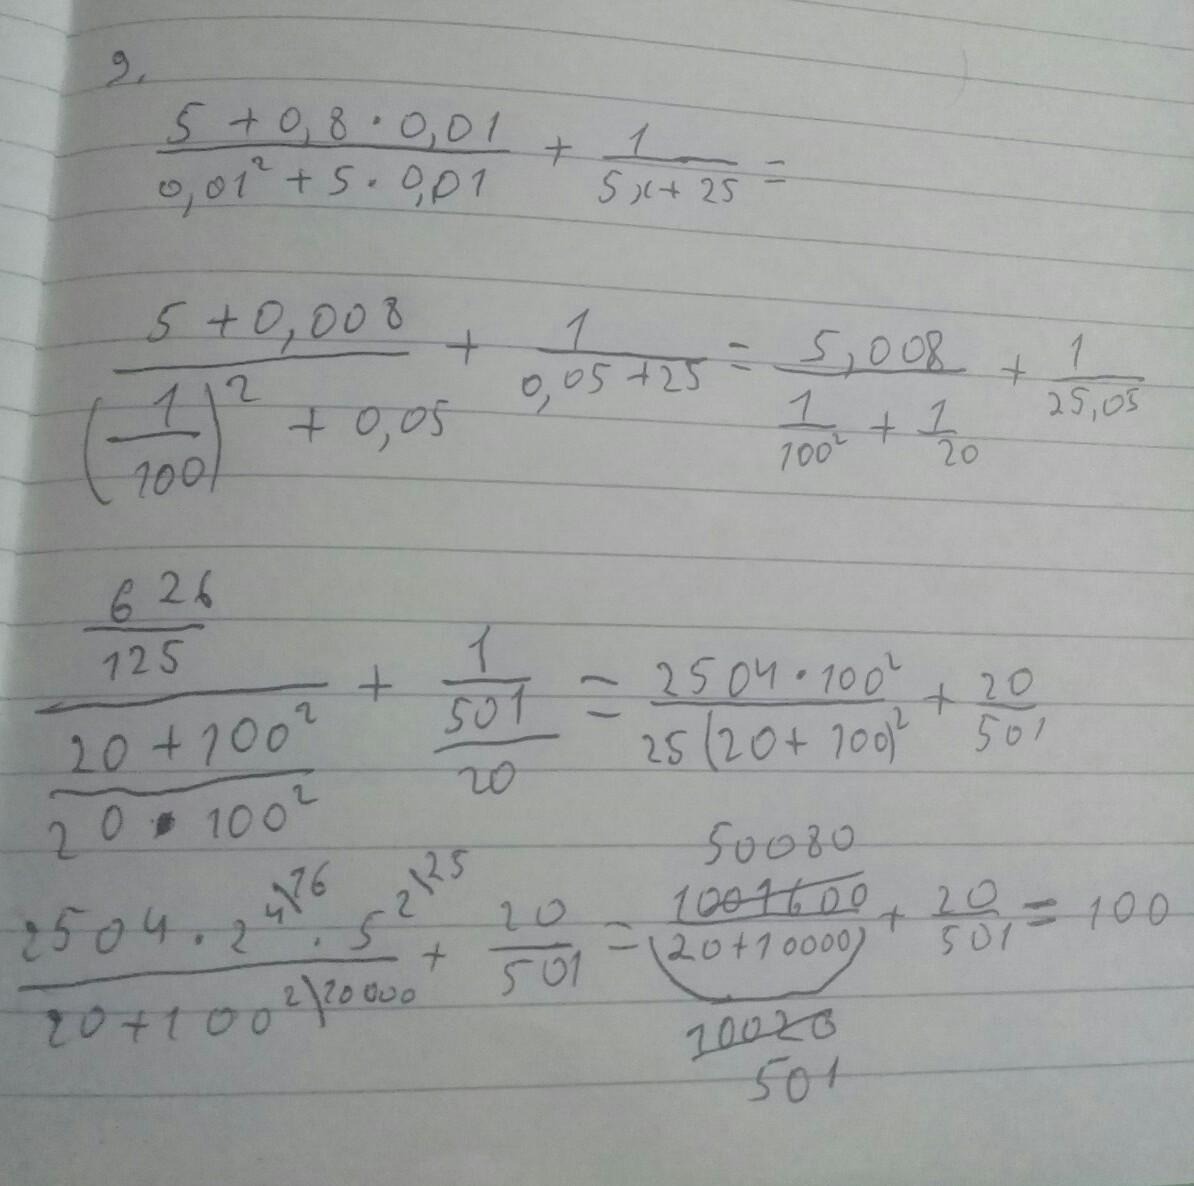 9.
(5 + 0,8 · 0,01)/(0,01² + 5 · 0,01) + 1/(5x + 25) =
(5 + 0,008)/((1/100)² + 0,05) + 1/(0,05 + 25) = 5,008/(1/100² + 1/20) + 1/25,05
(626/125)/((20 + 100²)/(20 · 100²)) + 1/(501/20) = (2504 · 100²)/(25(20 + 100)²) + 20/501
(2504 · 2⁴\16 · 5²\25)/(20 + 100²\10000) + 20/501 = 50080 1001600/(20 + 10000) 10020 501 + 20/501 = 100